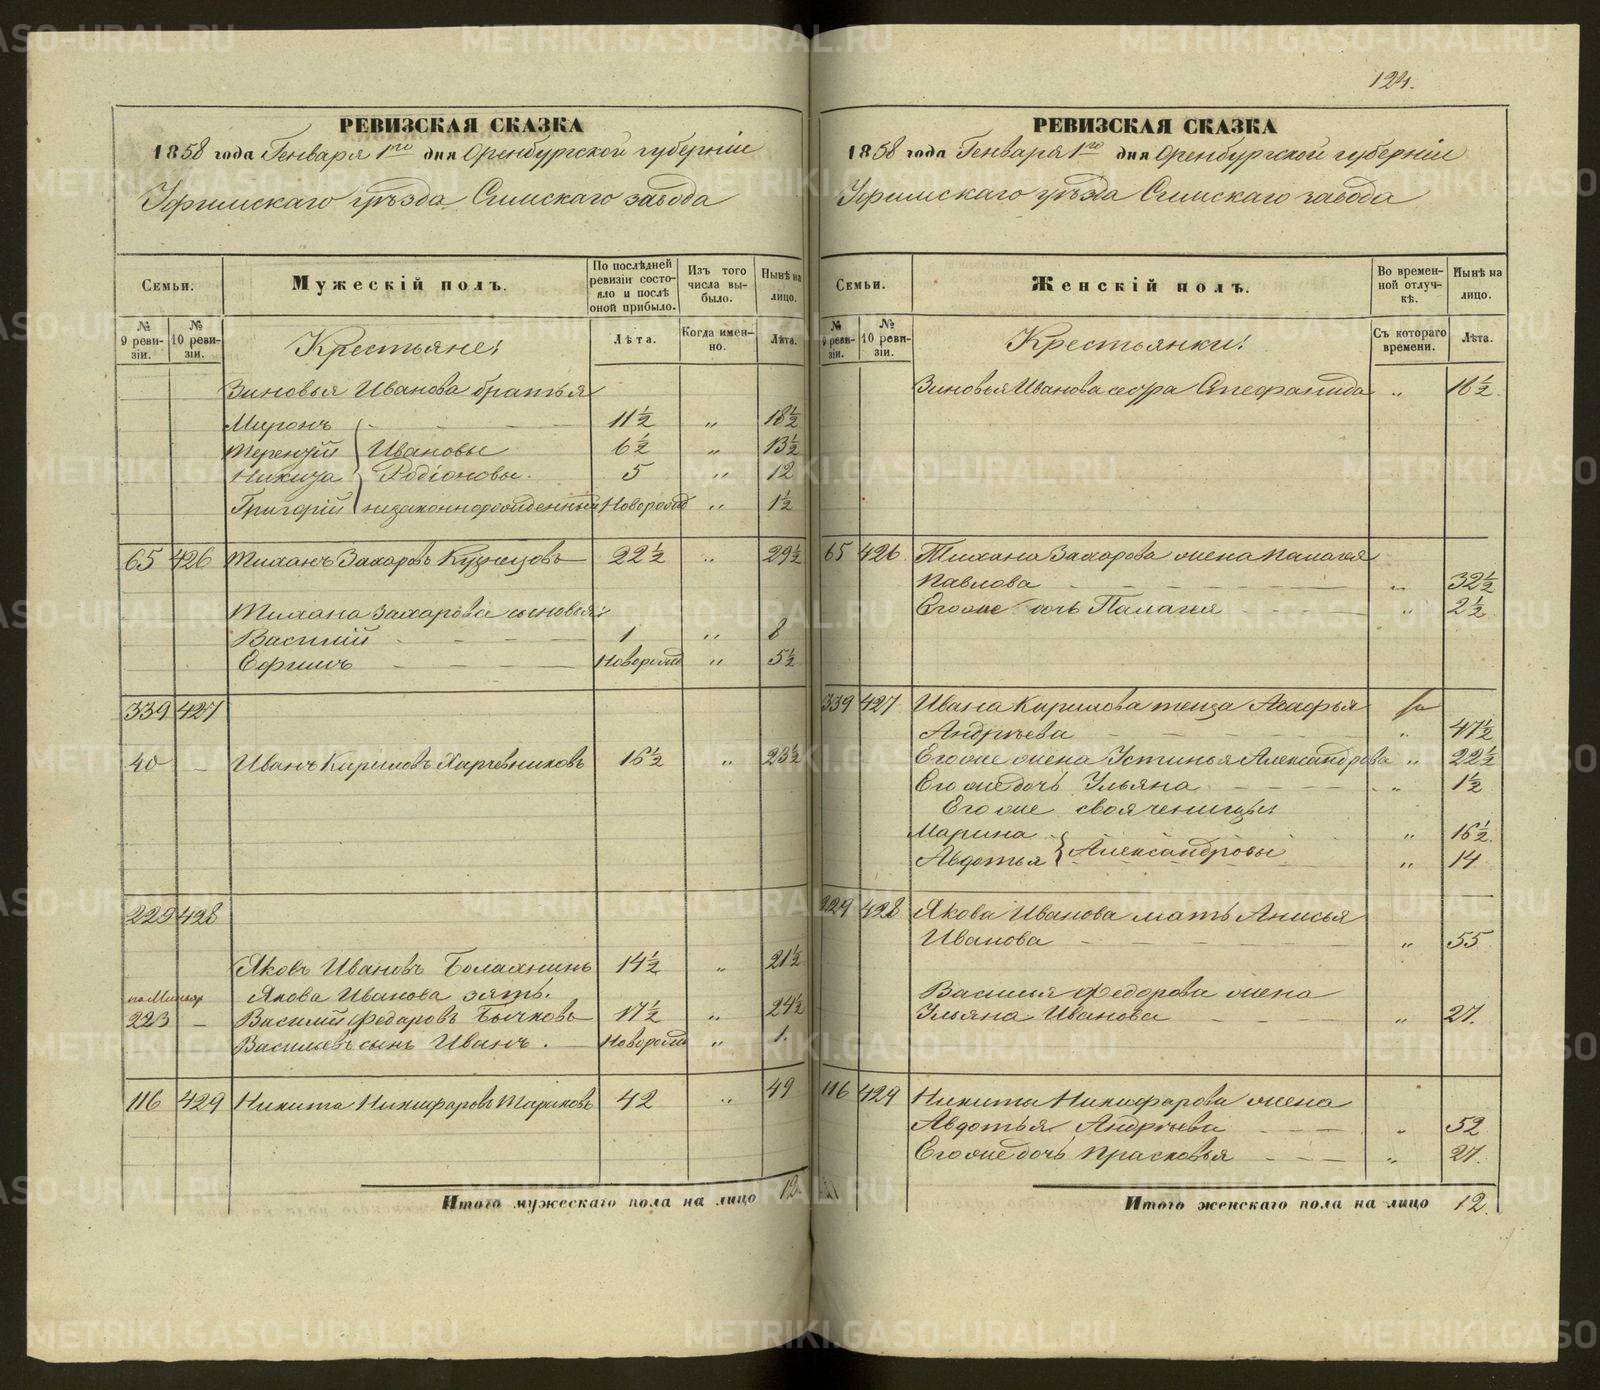 124.
РЕВИЗСКАЯ СКАЗКА
1858 года Генваря 1го дня Оренбургской губерніи
Уфимскаго уѣзда Симскаго завода
Семьи.
Мужескій полъ.
По послѣдней ревизіи состояло и послѣ оной прибыло.
Изъ того числа выбыло.
Нынѣ на лицо.
№ 9 ревизіи.
№ 10 ревизіи.
Крестьяне:
Лѣта.
Когда именно.
Лѣта.
Зиновья Иванова братья
Миронъ 11½ „ 18½
Терентій Ивановы 6½ „ 13½
Никита Родіоновы. 5 „ 12
Григорій незаконнорожденный Новорожд „ 1½
65 426 Тиханъ Захаровъ Кузнецовъ 22½ „ 29½
Тихана Захарова сыновья:
Василій 1 „ 8
Ефимъ Новорожд „ 5½
339 427
40 — Иванъ Кириловъ Харчевниковъ 16½ „ 23½
229 428
Яковъ Ивановъ Балахнинъ 14½ „ 21½
Якова Иванова зять.
223 — Василий Федоровъ Бычковъ 17½ „ 24½
Васильевъ сынъ Иванъ. Новорожд „ 1.
116 429 Никита Никифаровъ 42 „ 49
Итого мужескаго пола на лицо 12.
РЕВИЗСКАЯ СКАЗКА
1858 года Генваря 1го дня Оренбургской губерніи
Уфимскаго уѣзда Симскаго завода
Семьи.
Женскій полъ.
Во временной отлучкѣ.
Нынѣ на лицо.
№ 9 ревизіи.
№ 10 ревизіи.
Крестьянки:
Съ котораго времени.
Лѣта.
Зиновья Иванова сестра Епефанида „ 16½
65 426 Тихана Захарова жена Палагея
Павлова „ 32½
Его же дочь Палагея „ 2½
339 427 Ивана Кирилова теща Агафья
Андрѣева „ 47½
Его же жена Устинья Александрова „ 22½
Его же дочь Ульяна „ 1½
Его же свояченицы:
Марина „ 16½
Авдотья Александровы „ 14
229 428 Якова Иванова мать Анисья
Иванова „ 55
Василья Федорова жена
Ульяна Иванова „ 27.
116 429 Никиты Никифарова жена
Авдотья Андрѣева „ 52
Его же дочь Прасковья „ 27.
Итого женскаго пола на лицо 12.
METRIKI.GASO-URAL.RU